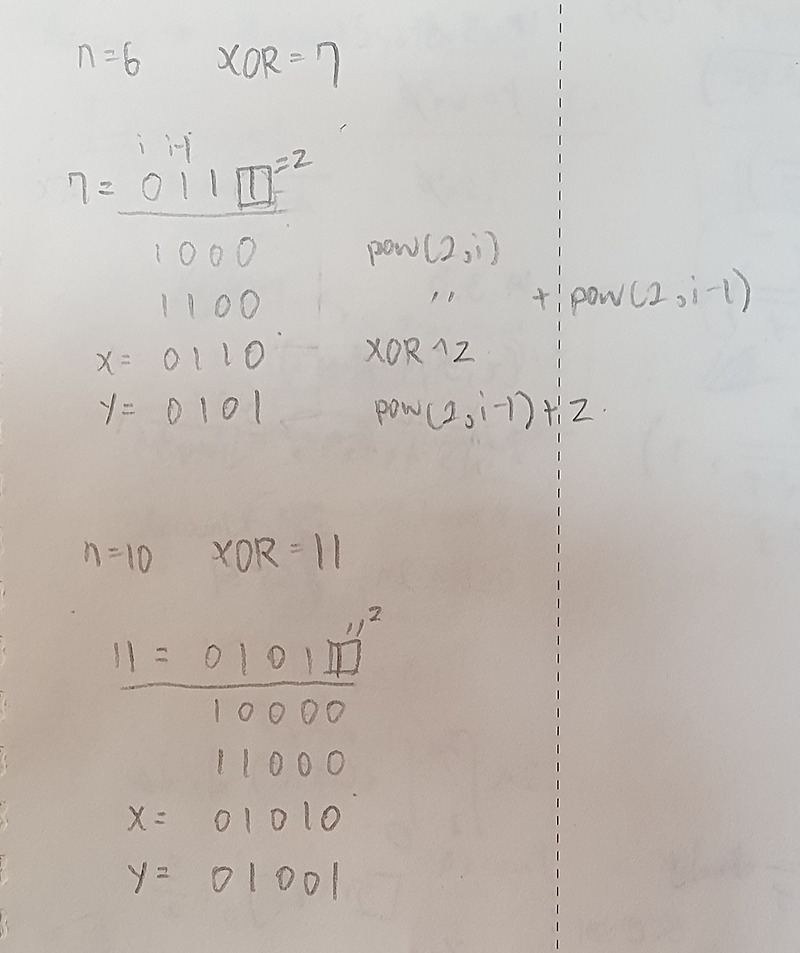 n=6 XOR=7
i i-1
7= 0111 =2
1000 pow(2,i)
1100 " + pow(2,i-1)
x= 0110 XOR^Z
y= 0101 pow(2,i-1)+Z
n=10 XOR=11
11= 01011 "2
10000
11000
x= 01010
y= 01001